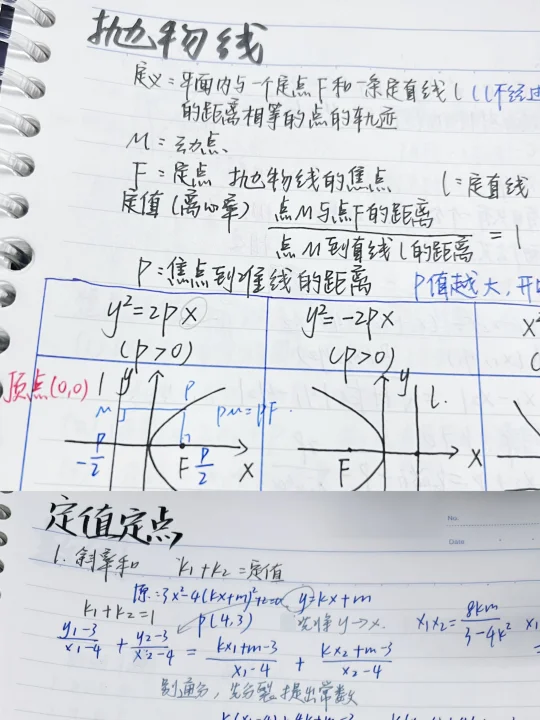 抛物线
定义=平面内与一个定点F和一条定直线l(l不经过
的距离相等的点的轨迹
M=动点.
F=定点 抛物线的焦点 l=定直线
定值(离心率) 点M与点F的距离/点M到直线l的距离 = 1
P=焦点到准线的距离 P值越大,开
y²=2px y²=-2px x²
(p>0) (p>0) (
顶点(0,0) l y y l.
M P PM=PF.
-p/2 F p/2 x F x
定值定点
No.
Date
1. 斜率和 k₁+k₂=定值
原:3x²-4(kx+m)²+12=0 y=kx+m
k₁+k₂=1 P(4,3) 先将y→x. x₁x₂=8km/3-4k²
y₁-3/x₁-4 + y₂-3/x₂-4 = kx₁+m-3/x₁-4 + kx₂+m-3/x₂-4
别通分,先分裂,提出常数